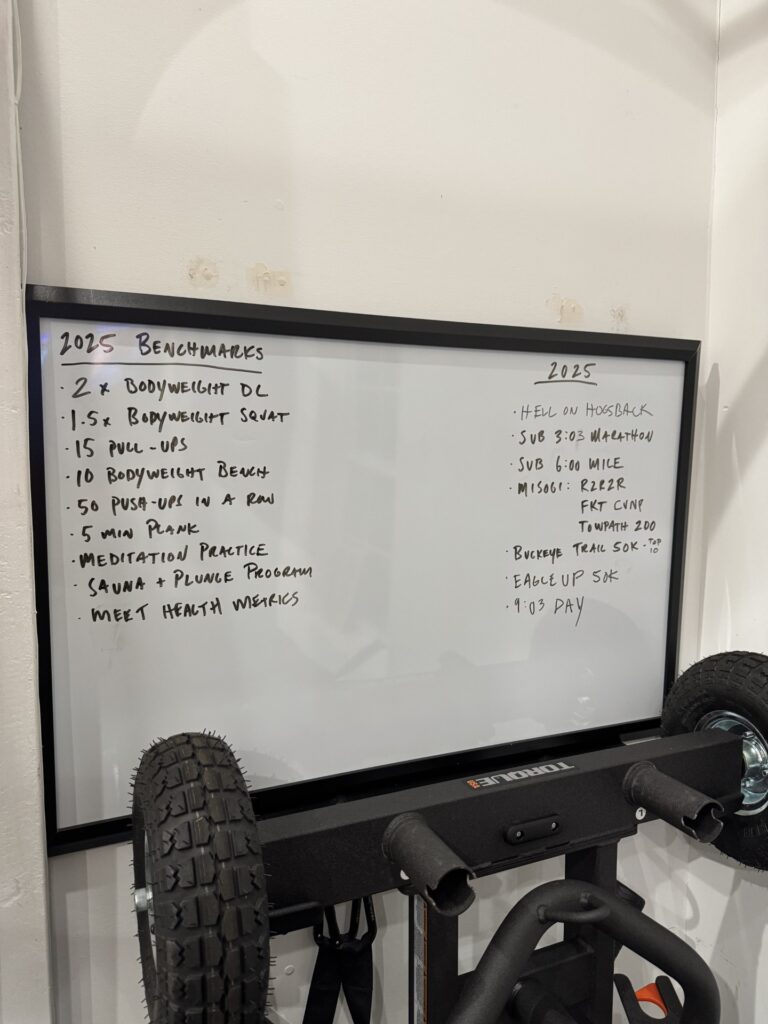 2025 BENCHMARKS
· 2 x BODYWEIGHT DL
· 1.5x BODYWEIGHT SQUAT
· 15 PULL-UPS
· 10 BODYWEIGHT BENCH
· 50 PUSH-UPS IN A ROW
· 5 MIN PLANK
· MEDITATION PRACTICE
· SAUNA + PLUNGE PROGRAM
· MEET HEALTH METRICS
2025
· HELL ON HOGSBACK
· SUB 3:03 MARATHON
· SUB 6:00 MILE
· MISOGI: R2R2R
FKT CVNP
TOWPATH 200
· BUCKEYE TRAIL 50K - TOP 10
· EAGLE UP 50K
· 9:03 DAY
TORQUE